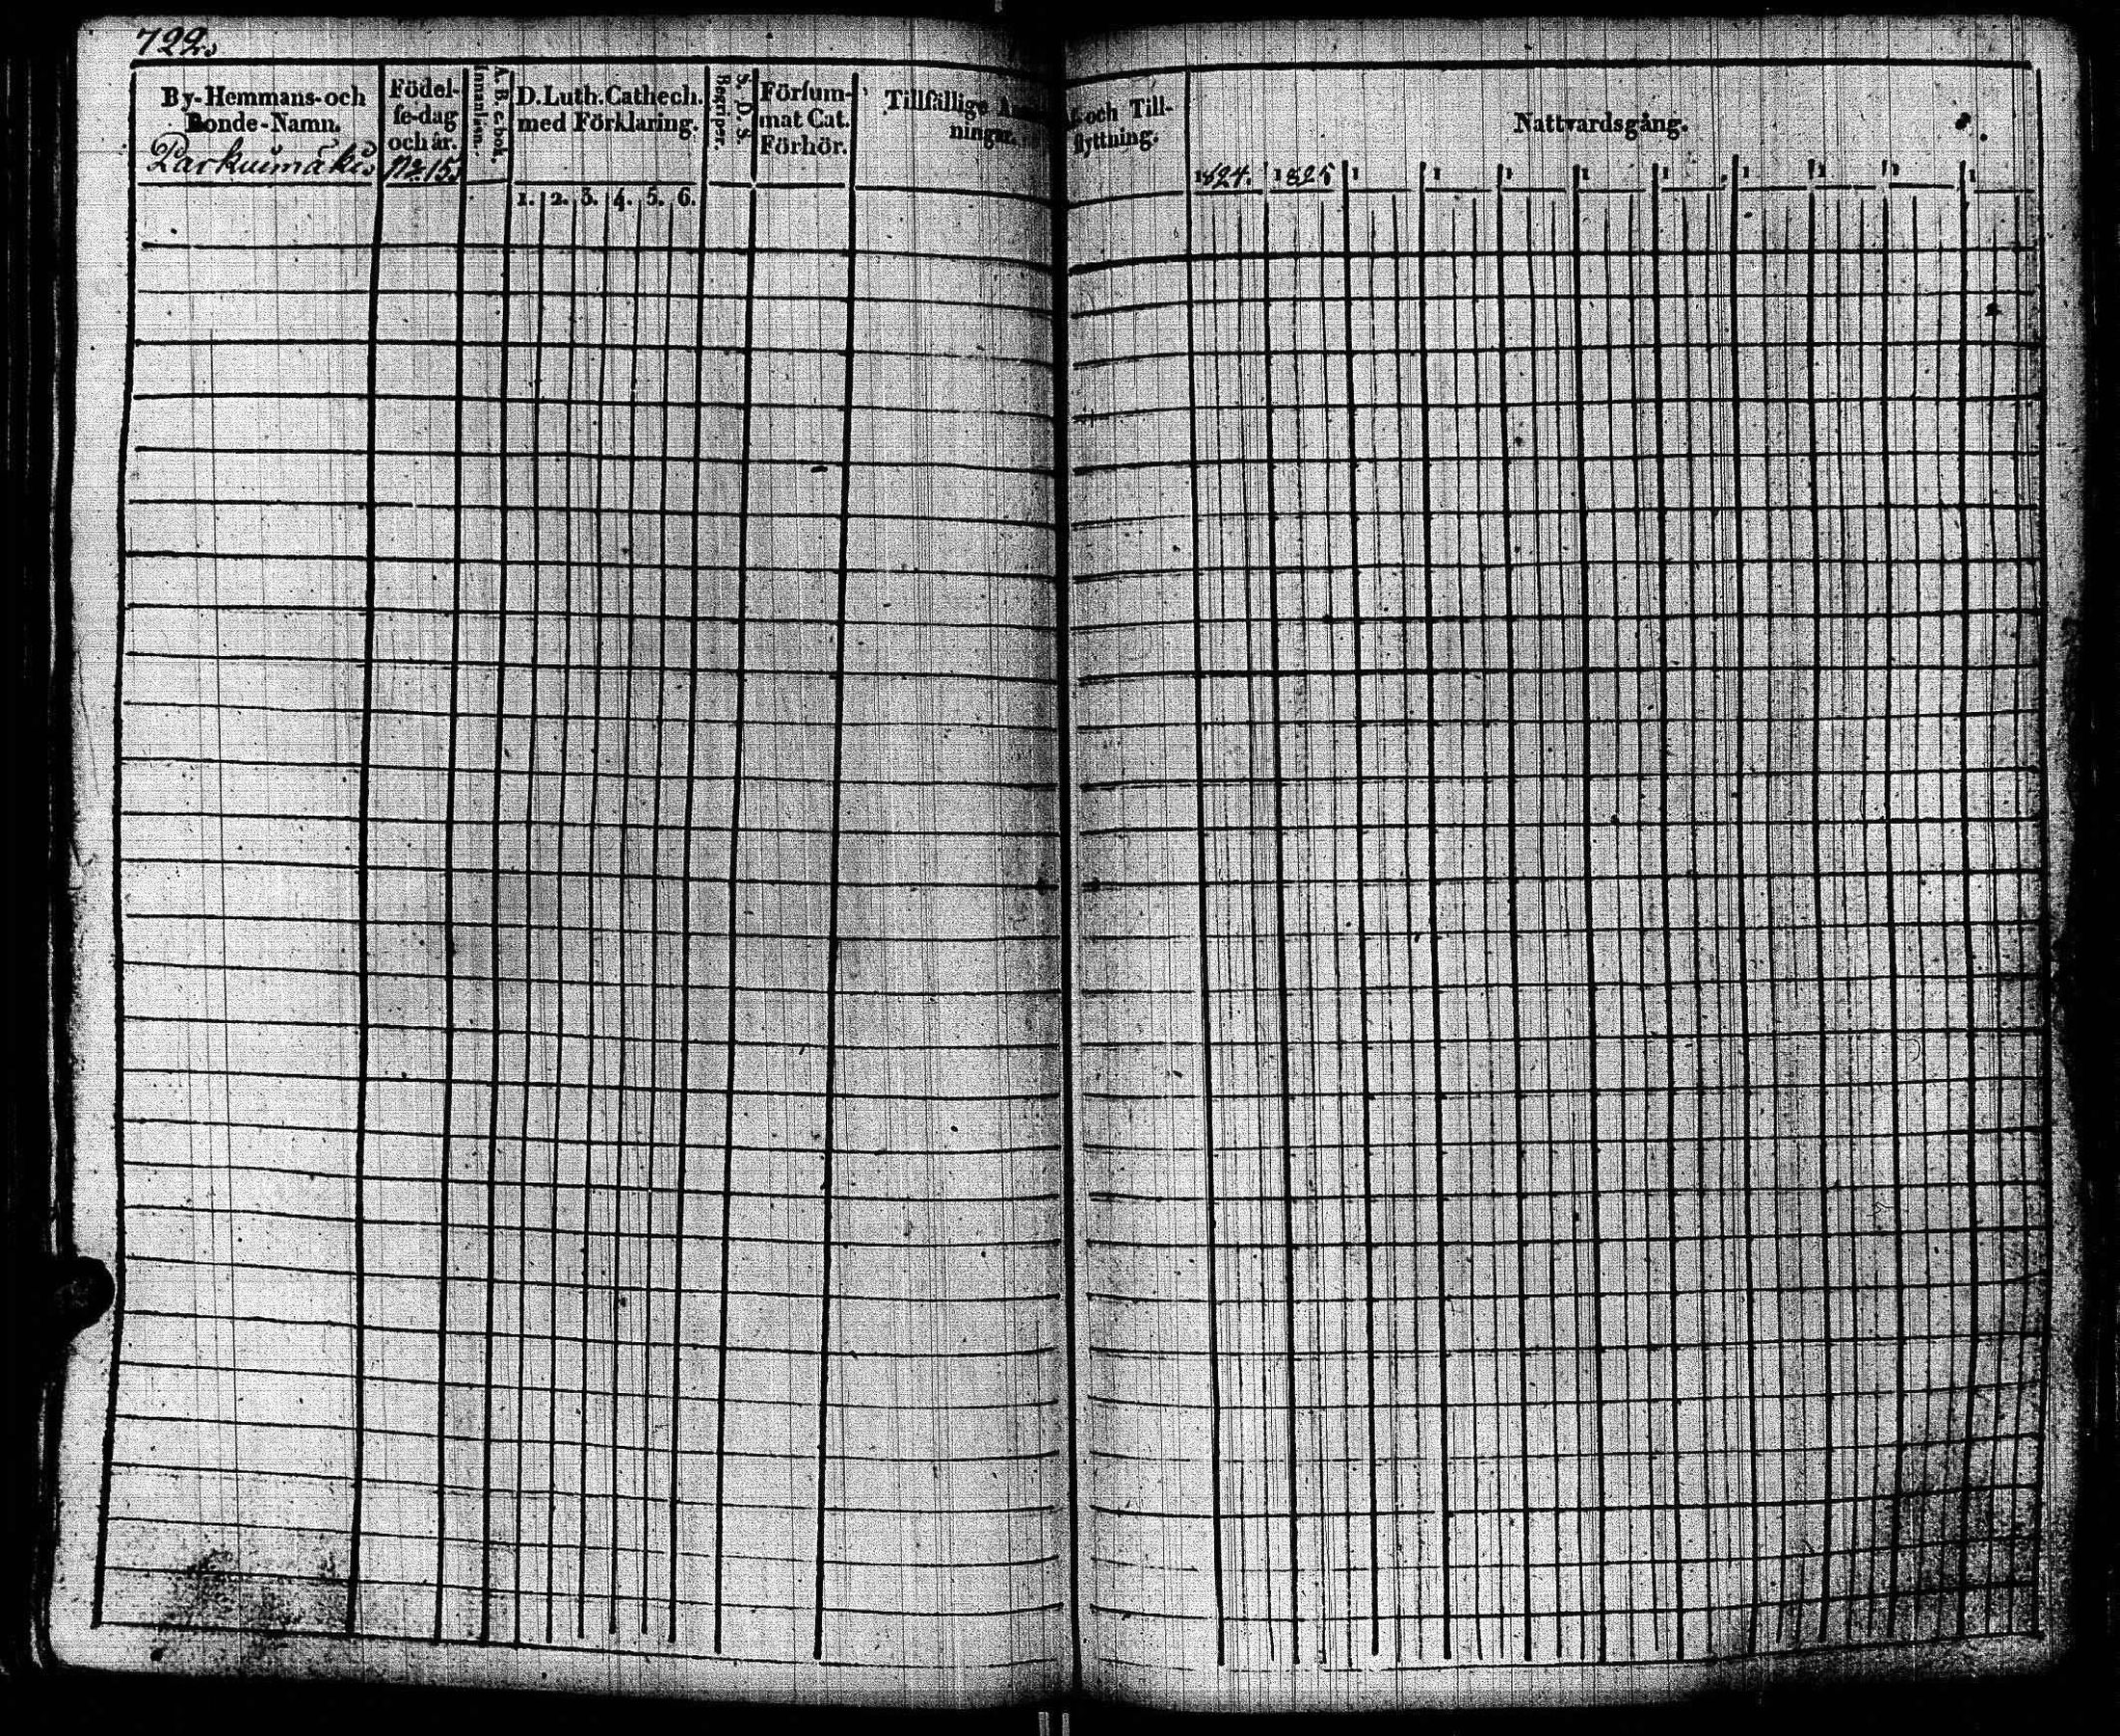 722.
By-Hemmans-och
Bonde-Namn.
Parkuimäki
Födel-
se-dag
och år.
No 15.
A. B. c-bok.
Innanläsn.
D. Luth. Cathech.
med Förklaring.
1. 2. 3. 4. 5. 6.
S. D. S.
Begriper.
Försum-
mat Cat.
Förhör.
Tillfällige
ningar.
och Till-
flyttning.
Nattvardsgång.
1824. 1825 1 1 1 1 1 1 1 1 1